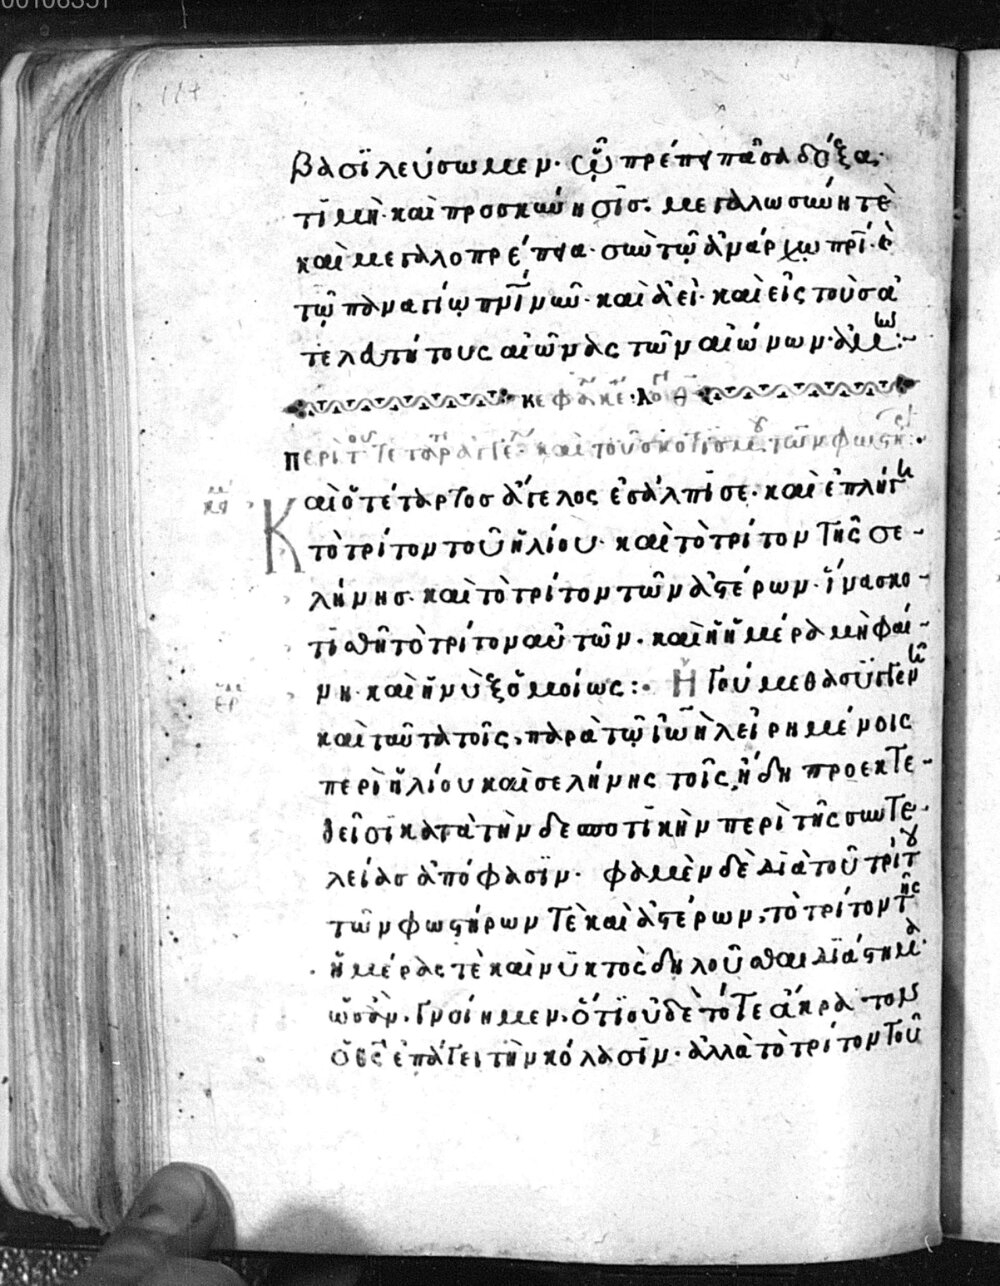 114
βασϊλεύσωμεν· ᾧ πρέπει πᾶσα δόξα·
τϊμὴ· καὶ προσκύνησϊσ· μεγαλωσύνη τὲ
καὶ μεγαλοπρέπεια· σὺν τῷ ἀνάρχω πρϊ· ὲ
τῷ παναγίω πνϊ· νῦν· καὶ ἀεὶ· καὶ εἰς τοὺσ ἀ
τελατήτους αἰῶνας τῶν αἰώνων· ἀμω:~
κεφα κε· λο θ
περὶ τ τετάρτ ἀγγέλ· καὶ τοῦ σκοτϊσμ τῶν φωστη·
Καὶ ὁ τέταρτοσ ἄγγελος ἐσάλπϊσε· καὶ ἐπλήγη
τὸ τρίτον τοῦ ἡλίου· καὶ τὸ τρίτον τῆς σε-
λήνησ· καὶ τὸ τρίτον τῶν ἀστέρων· ἵνα σκο-
τϊσθῆ τὸ τρίτον αὐτῶν· καὶ ἡ ἡμέρα μὴ φαί-
νη· καὶ ἡ νὺξ ὁμοίως:· Ἡγούμεθα συγγενῆ
ἑρ
καὶ ταῦτα τοῖς, παρὰ τῷ ϊωὴλ εἰρημένοις
περὶ ἡλίου καὶ σελήνης τοῖς, ἤδη προεκτε-
θεῖσϊ κατὰ τὴν δεσποτϊκὴν περὶ τῆς συντε-
λείασ ἀπόφασϊν· φαμὲν δὲ διὰ τοῦ τρίτου
τῶν φωστήρων τὲ καὶ ἀστέρων, τὸ τρίτον τῆς
ἡμέρας τὲ καὶ νϋκτὸς δηλοῦσθαι διάστημα·
ὡσὰν· γνοίημεν, ὅτϊ οὐδὲ τότε ἄκρατον
ὁ θς ἐπάγει τὴν κόλασϊν· ἀλλὰ τὸ τρίτον τοῦ